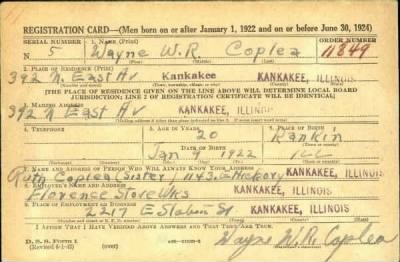 REGISTRATION CARD—(Men born on or after January 1, 1922 and on or before June 30, 1924)
SERIAL NUMBER 1. NAME (Print) ORDER NUMBER
N 5 Wayne W.R. Coplea 11849
(First) (Middle) (Last)
2. PLACE OF RESIDENCE (Print)
392 N. East Av Kankakee KANKAKEE, ILLINOIS
[THE PLACE OF RESIDENCE GIVEN ON THE LINE ABOVE WILL DETERMINE LOCAL BOARD
JURISDICTION; LINE 2 OF REGISTRATION CERTIFICATE WILL BE IDENTICAL]
3. MAILING ADDRESS
392 N East Av KANKAKEE, ILLINOIS
[Mailing address if other than place indicated on line 2. If same insert word same]
4. TELEPHONE 5. AGE IN YEARS 6. PLACE OF BIRTH
20 Rankin
DATE OF BIRTH
Jan 9 1922 Ill
7. NAME AND ADDRESS OF PERSON WHO WILL ALWAYS KNOW YOUR ADDRESS
Ruth Coplea Sister 1143 E Hickory
8. EMPLOYER'S NAME AND ADDRESS
Florence Stove Wks KANKAKEE, ILLINOIS
9. PLACE OF EMPLOYMENT OR BUSINESS
2217 E St KANKAKEE, ILLINOIS
I AFFIRM THAT I HAVE VERIFIED ABOVE ANSWERS AND THAT THEY ARE TRUE.
D. S. S. Form 1
(Revised 6-1-42)
Wayne W.R. Coplea